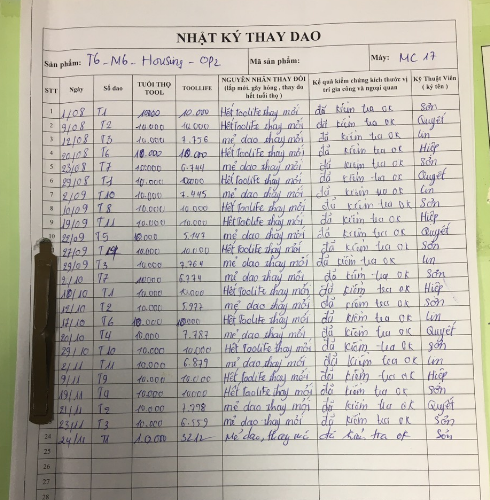 NHẬT KÝ THAY DAO
Sản phẩm: T6-M6-Housing-OP2 Mã sản phẩm: Máy: MC 17
STT Ngày Số dao TUỔI THỌ TOOL TOOLLIFE NGUYÊN NHÂN THAY ĐỔI (lắp mới, gãy hỏng, thay do hết tuổi thọ) Kết quả kiểm chứng kích thước vị trí gia công và ngoại quan Kỹ Thuật Viên (ký tên)
1 1/08 T1 10.000 10.000 Hết Toolife thay mới đã kiểm tra OK Sơn
2 9/08 T2 10.000 10.000 Hết Toolife thay mới đã kiểm tra OK Quyết
3 12/08 T3 10.000 7.756 mẻ dao thay mới đã kiểm tra OK
4 20/08 T6 10.000 10.000 Hết Toolife thay mới đã kiểm tra OK Hiệp
5 25/08 T7 10.000 6.744 mẻ dao thay mới đã kiểm tra OK Sơn
6 29/08 T1 10.000 10.000 Hết Toolife thay mới đã kiểm tra OK Quyết
7 T10 10.000 7.445 mẻ dao thay mới đã kiểm tra OK
8 10/09 T8 10.000 10.000 Hết Toolife thay mới đã kiểm tra OK Sơn
9 19/09 T11 10.000 10.000 Hết Toolife thay mới đã kiểm tra OK Hiệp
10 T5 10.000 mẻ dao thay mới đã kiểm tra OK Quyết
10.000 10.000 Hết Toolife thay mới đã kiểm tra OK Sơn
29/09 T3 10.000 7.764 mẻ dao thay mới đã kiểm tra OK
T7 10.000 6.774 mẻ dao thay mới đã kiểm tra OK Sơn
T1 10.000 10.000 Hết Toolife thay mới đã kiểm tra OK Hiệp
T2 10.000 5.977 mẻ dao thay mới đã kiểm tra OK Sơn
17/10 T6 10.000 10.000 Hết Toolife thay mới đã kiểm tra OK
20/10 T4 10.000 7.787 mẻ dao thay mới đã kiểm tra OK Quyết
29/10 T10 10.000 10.000 Hết Toolife thay mới đã kiểm tra OK Sơn
2/11 T11 10.000 6.879 mẻ dao thay mới đã kiểm tra OK
9/11 T9 10.000 10.000 Hết Toolife thay mới đã kiểm tra OK Hiệp
19/11 10.000 10.000 Hết Toolife thay mới đã kiểm tra OK Sơn
21/11 T2 10.000 7.798 mẻ dao thay mới đã kiểm tra OK Quyết
23/11 T3 10.000 6.559 mẻ dao thay mới đã kiểm tra OK Sơn
24 24/11 10.000 5212 Mẻ dao, thay mới đã kiểm tra OK Sơn
25
26
27
28